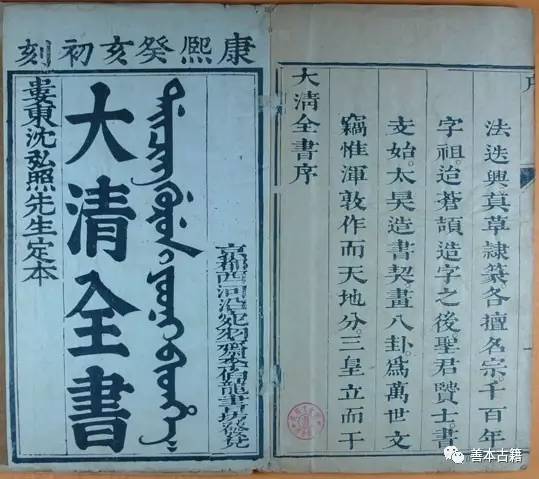 康熙癸亥初刻
京都西河沿宛羽齋李伯龍書坊發兌
ᡩᠠᡳᠴᡳᠩ ᡤᡠᡵᡠᠨ ᡳ ᠶᠣᠣᠨᡳ ᠪᡳᡨᡥᡝ
大清全書
婁東沈弘照先生定本
大清全書序
竊惟渾敦作而天地分。三皇立而干
支始。太昊造書契畫八卦。爲萬世文
字祖。迨蒼頡造字之後聖君賢士。書
法迭興真草隸篆各擅名宗。千百年
善本古籍